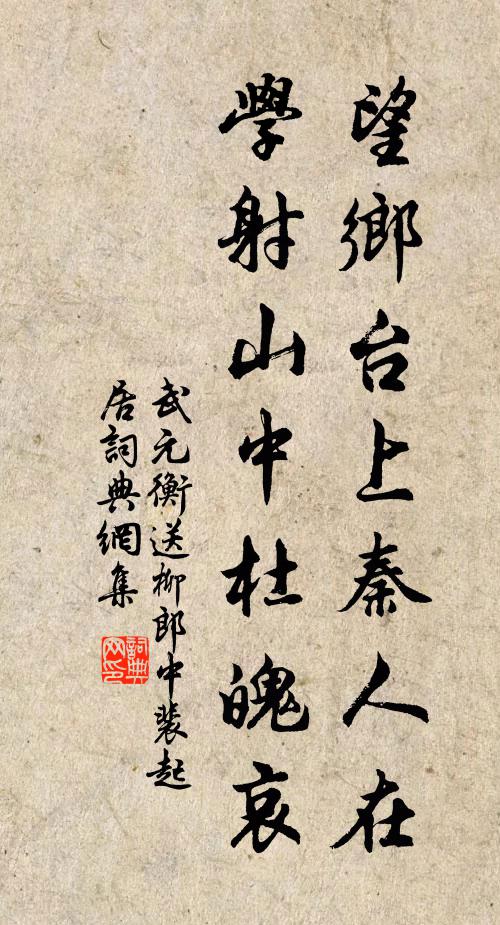 望鄉台上秦人在
學射山中杜魄哀
武元衡送柳郎中裴起
居詞典網集
詞典
网印